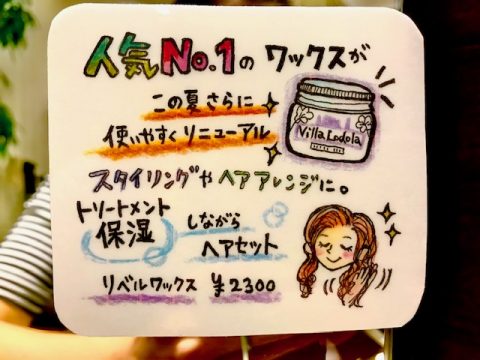 人気No.1の ワックスが
この夏 さらに
使いやすく リニューアル
Villa Lodola
スタイリングや ヘアアレンジに。
トリートメント
保湿 しながら
ヘアセット
リベルワックス ¥2300